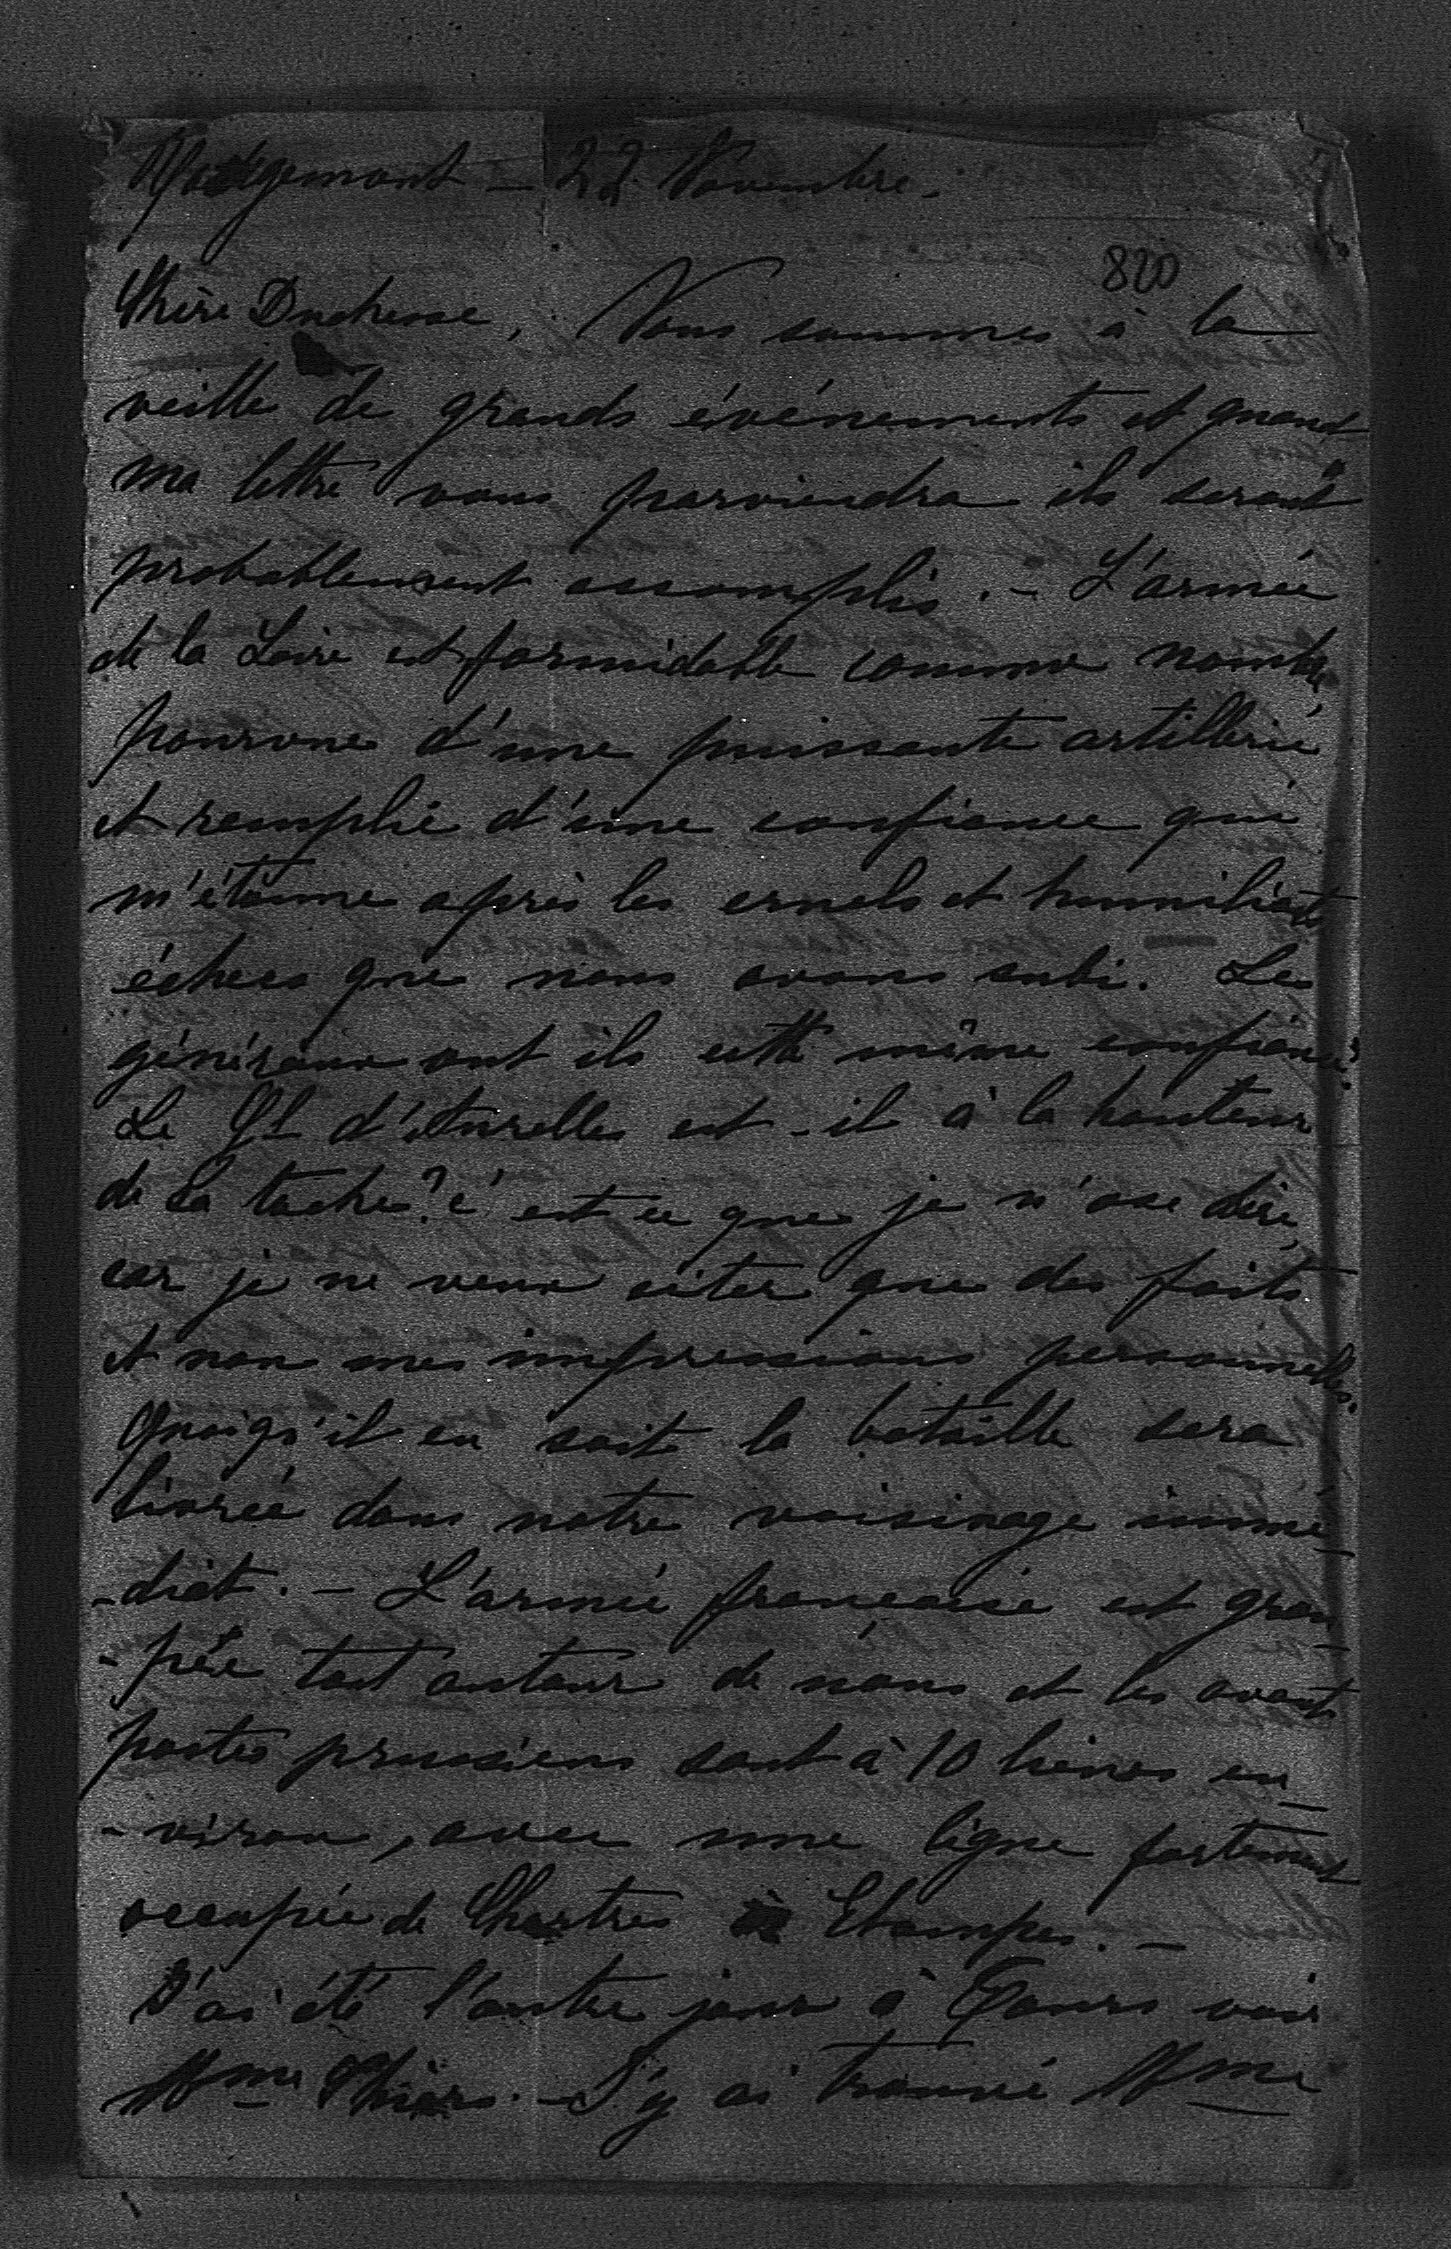 Rougemont – 22 Novembre.
820
Chère Duchesse, Nous sommes à la
veille de grands événements et quand
ma lettre vous parviendra ils seront
probablement accomplis. – L'armée
de la Loire est formidable comme nombre
pourvue d'une puissante artillerie
et remplie d'une confiance qui
m'étonne après les cruels et humiliants
échecs que nous avons subi. Les
généraux ont ils cette même confiance?
Le Gl d'Aurelle est-il à la hauteur
de sa tache? c'est ce que je n'ose dire,
car je ne veux citer que des faits
et non mes impressions personnelles.
Quoiqu'il en soit la bataille sera
livrée dans notre voisinage immé-
-diat. – L'armée française est grou-
-pée tout autour de nous et les avant
postes prussiens sont à 10 lieues en-
-viron, avec une ligne fortement
occupée de Chartres à Etampes. –
J'ai été l'autre jour à Tours voir
Mme Thiers. – J'y ai trouvé Mme